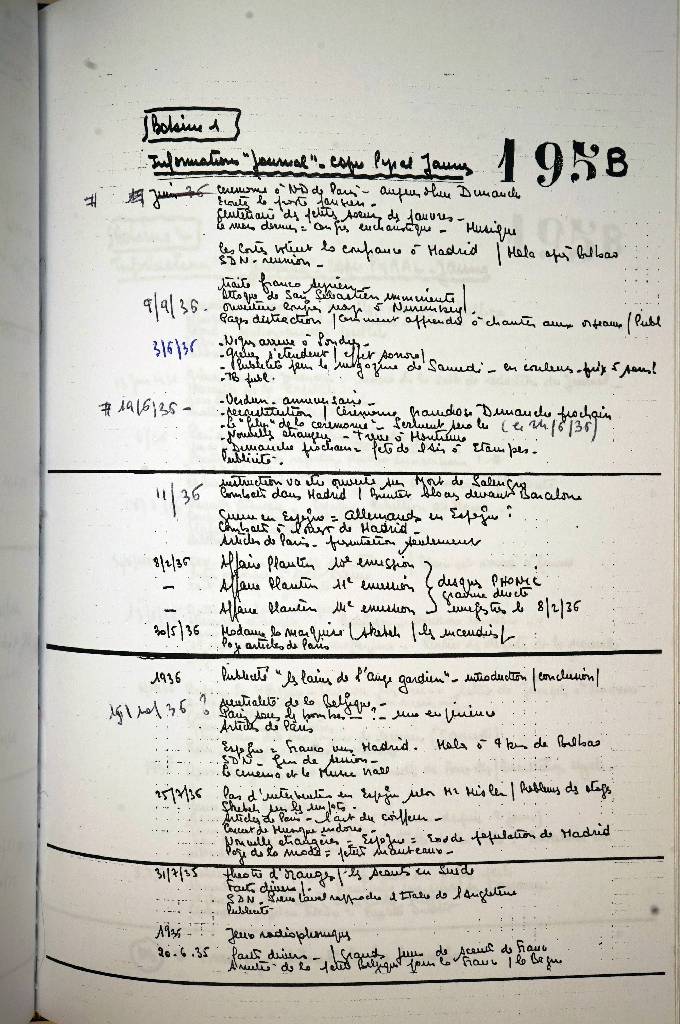 Bobine 1
Informations "Journal" - copie Pyral Jaune 195B
# juin 36 cérémonie à ND de Paris - aujourd'hui Dimanche
Ecoutez le poste parisien -
Centenaire des petites soeurs des pauvres -
le mois dernier = congrès eucharistique - Musique
les Cortès votent la confiance à Madrid / Mola après Bilbao
SDN - réunion -
traité franco syrien -
attaque de San Sébastien imminente /
9/9/36. ouverture congrès nazi à Nuremberg /
Pages distraction / Comment apprendre à chanter aux oiseaux / Publ
3/6/36 - Négus arrive à Londres -
- Grèves s'étendent / effet sonore /
- Publicité pour le magazine de Samedi - en couleurs - prix 5 sous!
- publ.
# 19/6/36 - - Verdun - anniversaire -
- reconstitution / Cérémonie grandiose Dimanche prochain
- le "film" de la cérémonie - Serment pour la (le 24/6/36)
- Nouvelles étrangères - à Montreux
- Dimanche prochain = fête de l'air à Etampes -
Publicité -
11/36 instruction va être ouverte sur Mort de Salengro
Combats dans Madrid / devant Barcelone
Guerre en Espagne = Allemands en Espagne ?
Combats à l'ouest de Madrid -
Articles de Paris - présentation seulement
8/2/36 Affaire Plantin 10e émission
- Affaire Plantin 11e émission } disques PHONIC gravure directe
- Affaire Plantin émission } enregistrés le 8/2/36
30/5/36 Madame la marquise / sketch / les incendies /
Page articles de Paris
1936 Publicité "les laines de l'ange gardien" - introduction / conclusion /
36 ? neutralité de la Belgique -
Paris sous les bombes - ? - une expérience
Articles de Paris
Espagne = Franco vers Madrid. Mola à 9 km de Bilbao
SDN - fin de session -
le cinéma et le Music hall
25/7/36 Pas d'intervention en Espagne selon Mr / Problème des otages
Sketch sur les impôts -
Articles de Paris - l'art du coiffeur -
Concert de Musique
Nouvelles étrangères = Espagne = Exode population de Madrid
Page de la mode = petits manteaux -
31/7/35 théâtre d'Orange / les scouts en Suède
Faits divers /.
SDN - Pierre Laval rapproche l'Italie de l'Angleterre
Publicité
1935 Jeux radiophoniques
20.6.35 Faits divers - / Grands feux de scouts de France
Amitié de la petite Belgique pour la France /